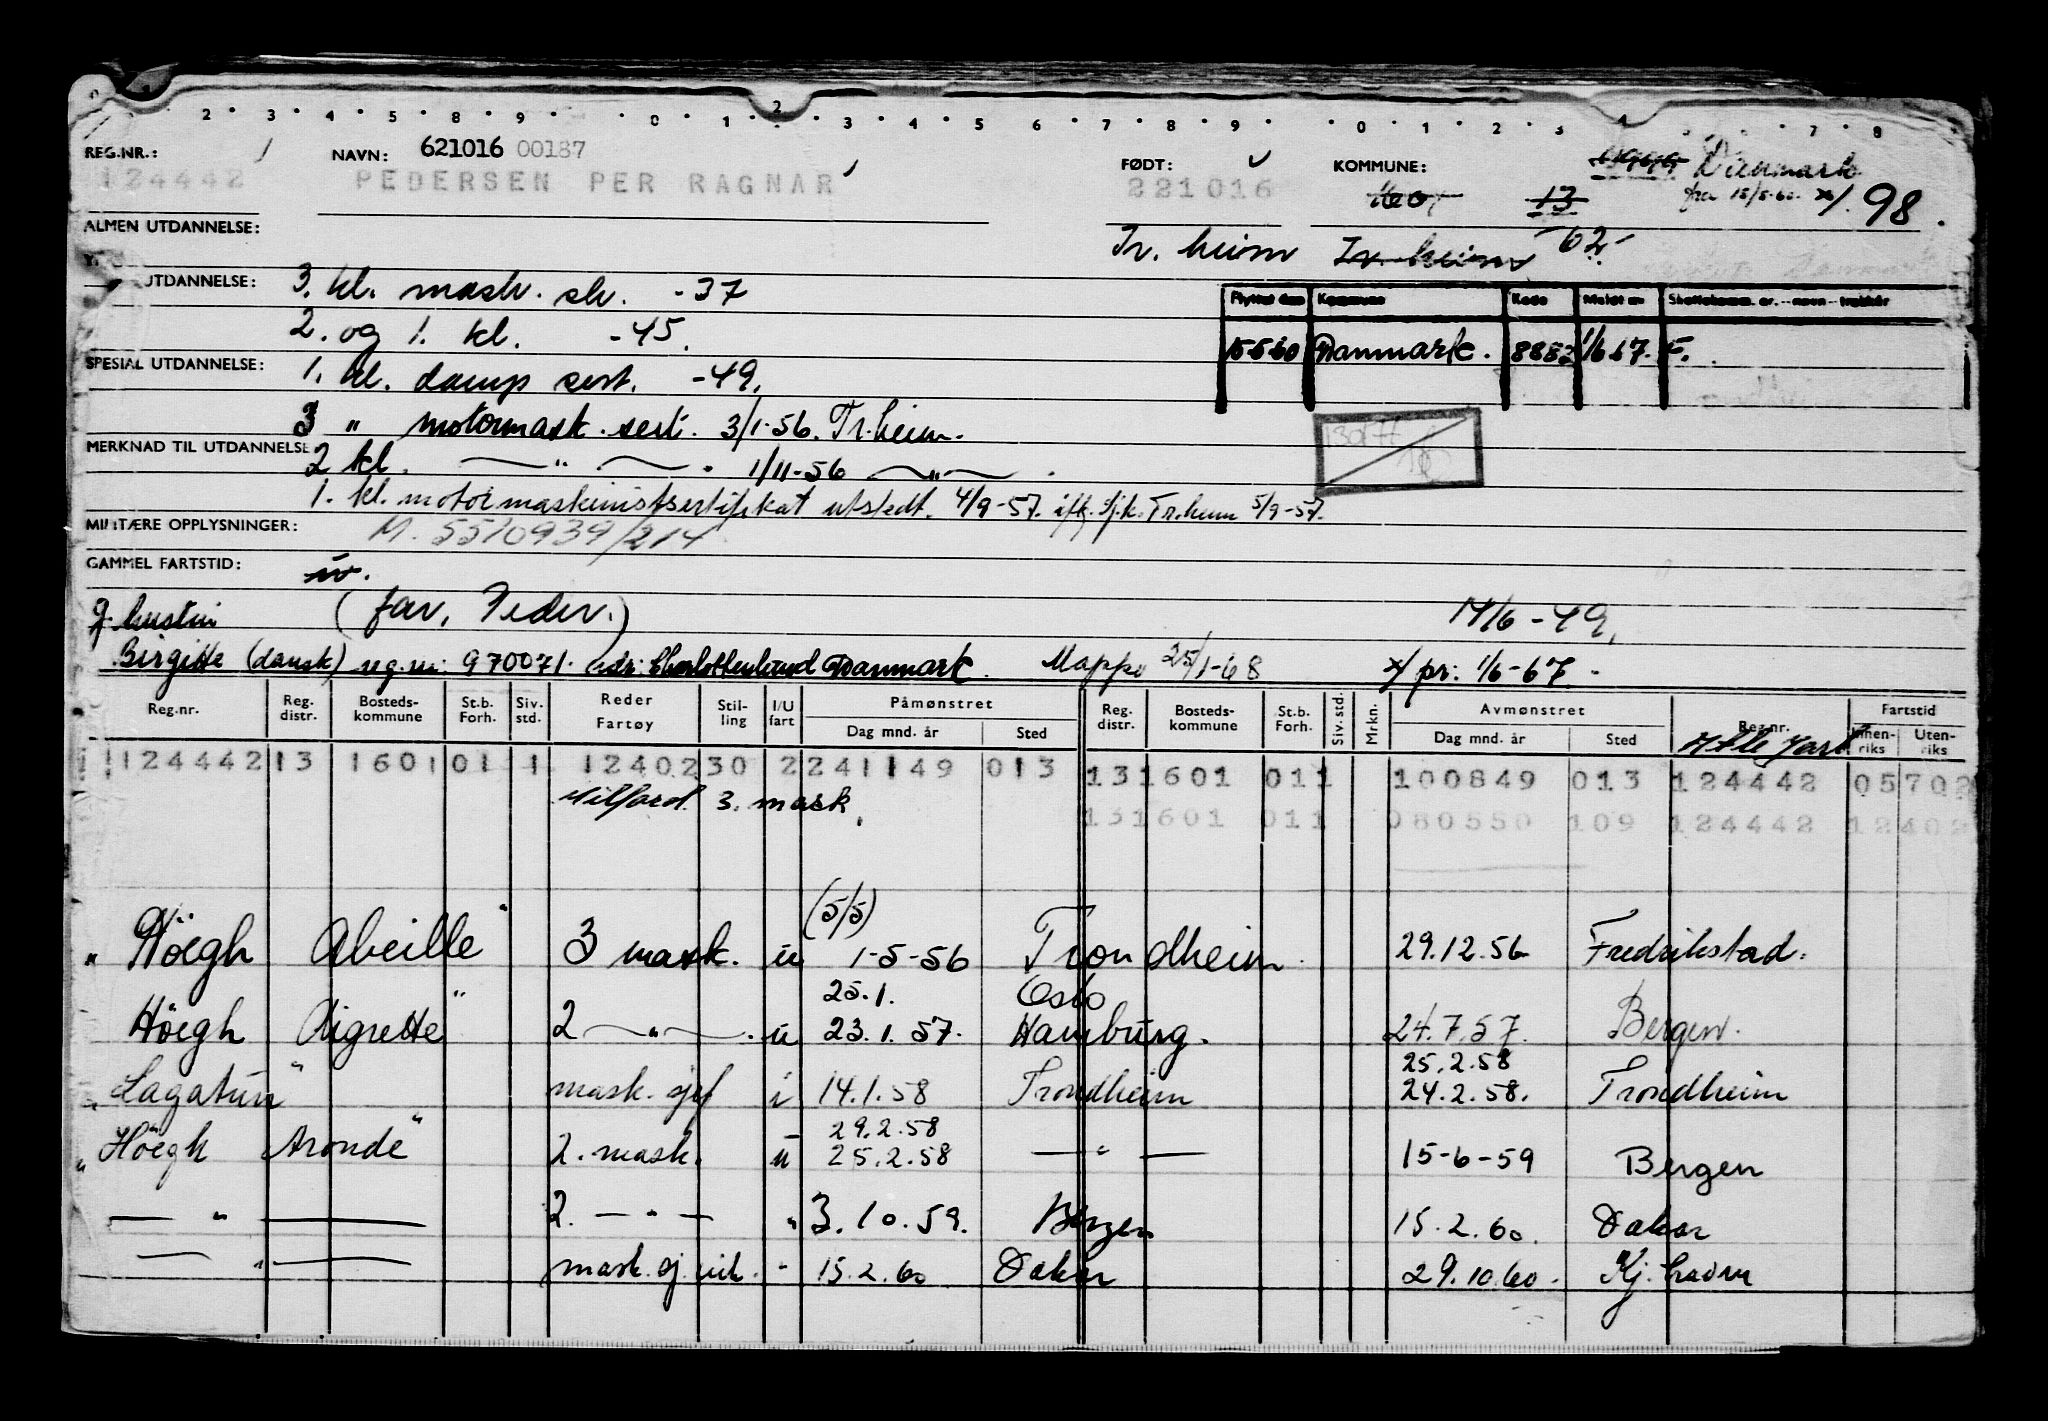 2 3 4 5 8 9 0 1 2 3 4 5 6 7 8 9 0 1 2 3 4 7 8
REG.NR.: NAVN: 621016 00187 FØDT: KOMMUNE: Danmark
124442 PEDERSEN PER RAGNAR 221016 13 fra 15/5-60. x/. 98.
ALMEN UTDANNELSE: Tr. heim Tr. heim 62
UTDANNELSE: 3. kl. mask. sk. -37
Flyttet den Kommune Kode Meldt av Skattekomm. nr. - navn - trekkår
2. og 1. kl. -45.
15560 Danmark. 8882 1/6 67. F.
SPESIAL UTDANNELSE: 1. kl. damp sert. -49.
3 " motormask. sert. 3/1-56. Tr.heim.
MERKNAD TIL UTDANNELSE 2 kl. — " — 1/11-56 — " —
1. kl. motormaskinistsertifikat utstedt. 4/9-57. ifg. sj.k. Tr.heim 5/9-57.
MILITÆRE OPPLYSNINGER: M. 5510939/214
GAMMEL FARTSTID:
g. hustru (far, Peder.) 14/6-49.
Birgitte (dansk) reg.nr: 970071. adr: Charlottenlund Danmark. Mappe 25/1-68 x/ pr: 1/6-67.
Reg.nr. Reg. distr. Bosteds- kommune St.b. Forh. Siv. std. Reder Fartøy Stil- ling I/U fart Påmønstret Dag mnd. år Sted Reg. distr. Bosteds- kommune St.b. Forh. Siv. std. Mrkn. Avmønstret Dag mnd. år Sted Reg.nr. Fartstid Innen- riks Uten- riks
124442 13 1601 01 1 12402 30 2 241149 013 131601 011 100849 013 124442 05702
Milford 3. mask.
131601 011 080550 109 124442 12402
(5/5)
" Höegh Abeille " 3 mask. u 1-5-56 Trondheim. 29.12.56 Fredrikstad.
25.1. Oslo
Höegh Aigrette " 2 — " — . u 23.1.57. Hamburg. 24.7.57. Bergen.
25.2.58
" Lagatun " mask. sjef i 14.1.58 Trondheim 24.2.58. Trondheim
29.2.58
" Höegh Aronde " 2. mask. u 25.2.58 — " — 15-6-59 Bergen
— " — 2. — " — " 3.10.59. Bergen 15.2.60. Dakar
— " — mask. sj. vik. - 15.2.60 Dakar 29.10.60. Kj.havn